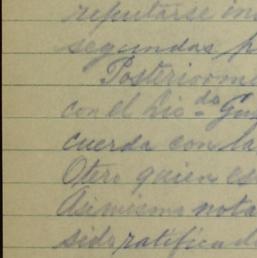 reputarse in
segundas p
Posteriorme
con el Lic.do Gu
cuerda con la
Otero quien es
Asimismo nota
sido ratificad